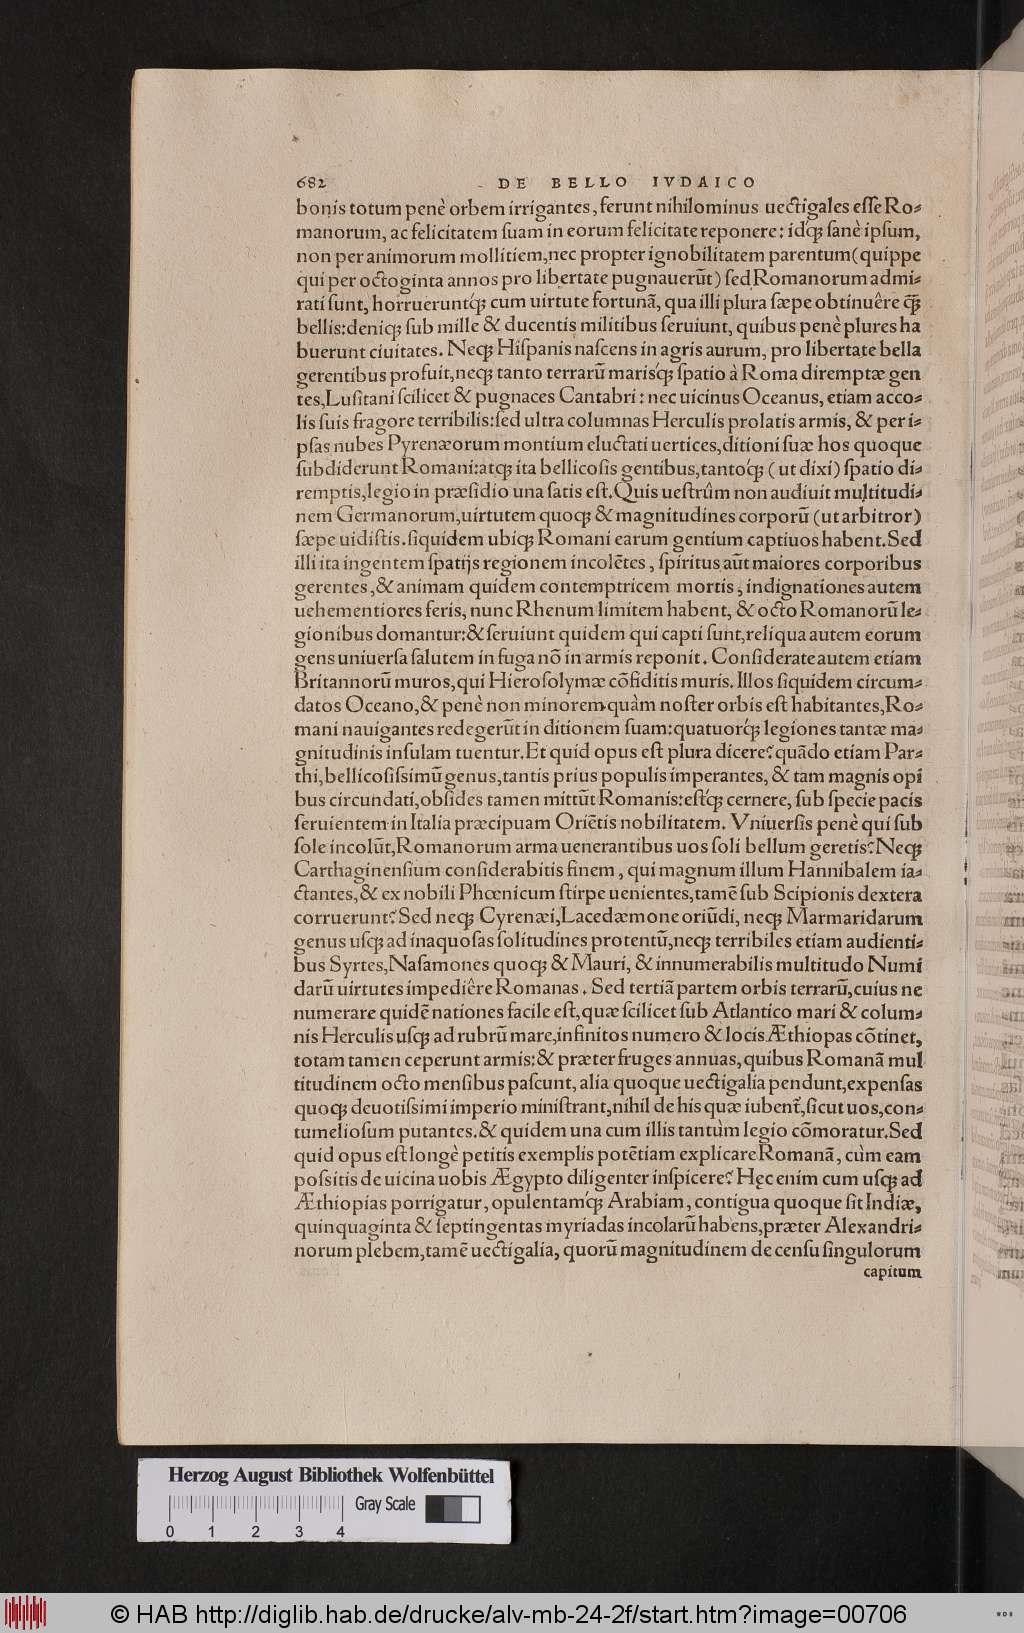 682 DE BELLO IVDAICO
bonis totum penè orbem irrigantes, ferunt nihilominus uectigales esse Ro⸗
manorum, ac felicitatem suam in eorum felicitate reponere: idq́ꝫ sanè ipsum,
non per animorum mollitiem, nec propter ignobilitatem parentum (quippe
qui per octoginta annos pro libertate pugnauerūt) sed Romanorum admi⸗
rati sunt, horrueruntq́ꝫ cum uirtute fortunā, qua illi plura sæpe obtinuêre q̄ꝫ
bellis: deniqꝫ sub mille & ducentis militibus seruiunt, quibus penè plures ha
buerunt ciuitates. Neqꝫ Hispanis nascens in agris aurum, pro libertate bella
gerentibus profuit, neqꝫ tanto terrarū marisq́ꝫ spatio à Roma diremptæ gen
tes, Lusitani scilicet & pugnaces Cantabri: nec uicinus Oceanus, etiam acco⸗
lis suis fragore terribilis: sed ultra columnas Herculis prolatis armis, & per i⸗
psas nubes Pyrenæorum montium eluctati uertices, ditioni suæ hos quoque
subdiderunt Romani: atqꝫ ita bellicosis gentibus, tantoq́ꝫ (ut dixi) spatio di⸗
remptis, legio in præsidio una satis est. Quis uestrûm non audiuit multitudi⸗
nem Germanorum, uirtutem quoqꝫ & magnitudines corporū (ut arbitror)
sæpe uidistis. siquidem ubiqꝫ Romani earum gentium captiuos habent. Sed
illi ita ingentem spatijs regionem incolētes, spiritus aūt maiores corporibus
gerentes, & animam quidem contemptricem mortis, indignationes autem
uehementiores feris, nunc Rhenum limitem habent, & octo Romanorū le⸗
gionibus domantur: & seruiunt quidem qui capti sunt, reliqua autem eorum
gens uniuersa salutem in fuga nō in armis reponit. Considerate autem etiam
Britannorū muros, qui Hierosolymæ cōfiditis muris. Illos siquidem circum⸗
datos Oceano, & penè non minorem quàm noster orbis est habitantes, Ro⸗
mani nauigantes redegerūt in ditionem suam: quatuorq́ꝫ legiones tantæ ma⸗
gnitudinis insulam tuentur. Et quid opus est plura dicere? quādo etiam Par⸗
thi, bellicosissimū genus, tantis prius populis imperantes, & tam magnis opi
bus circundati, obsides tamen mittūt Romanis: estq́ꝫ cernere, sub specie pacis
seruientem in Italia præcipuam Oriētis nobilitatem. Vniuersis penè qui sub
sole incolūt, Romanorum arma uenerantibus uos soli bellum geretis? Neqꝫ
Carthaginensium considerabitis finem, qui magnum illum Hannibalem ia⸗
ctantes, & ex nobili Phœnicum stirpe uenientes, tamē sub Scipionis dextera
corruerunt? Sed neqꝫ Cyrenæi, Lacedæmone oriūdi, neqꝫ Marmaridarum
genus usqꝫ ad inaquosas solitudines protentū, neqꝫ terribiles etiam audienti⸗
bus Syrtes, Nasamones quoqꝫ & Mauri, & innumerabilis multitudo Numi
darū uirtutes impediêre Romanas. Sed tertiā partem orbis terrarū, cuius ne
numerare quidē nationes facile est, quæ scilicet sub Atlantico mari & colum⸗
nis Herculis usqꝫ ad rubrū mare, infinitos numero & locis Æthiopas cōtinet,
totam tamen ceperunt armis: & præter fruges annuas, quibus Romanā mul
titudinem octo mensibus pascunt, alia quoque uectigalia pendunt, expensas
quoqꝫ deuotissimi imperio ministrant, nihil de his quæ iubent̄, sicut uos, con⸗
tumeliosum putantes. & quidem una cum illis tantùm legio cōmoratur. Sed
quid opus est longè petitis exemplis potētiam explicare Romanā, cùm eam
possitis de uicina uobis Ægypto diligenter inspicere? Hęc enim cum usqꝫ ad
Æthiopias porrigatur, opulentamq́ꝫ Arabiam, contigua quoque sit Indiæ,
quinquaginta & septingentas myriadas incolarū habens, præter Alexandri⸗
norum plebem, tamē uectigalia, quorū magnitudinem de censu singulorum
capitum
Herzog August Bibliothek Wolfenbüttel
Gray Scale
0 1 2 3 4
© HAB http://diglib.hab.de/drucke/alv-mb-24-2f/start.htm?image=00706